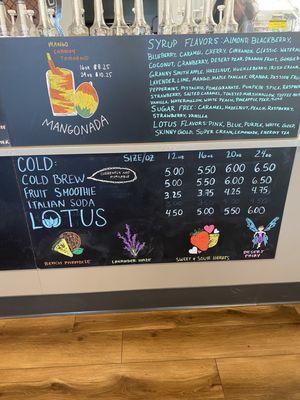 MANGO
CHAMOY
TAMARIND
16oz $8.25
24oz $10.25
MANGONADA
SYRUP FLAVORS: ALMOND, BLACKBERRY,
BLUEBERRY, CARAMEL, CHERRY, CINNAMON, CLASSIC NATURAL,
COCONUT, CRANBERRY, DESERT PEAR, DRAGON FRUIT, GINGER,
GRANNY SMITH APPLE, HAZELNUT, HUCKLEBERRY, IRISH CREAM,
LAVENDER, LIME, MANGO, MAPLE PANCAKE, ORANGE, PASSION FRUIT,
PEPPERMINT, PISTACHIO, POMEGRANATE, PUMPKIN SPICE, RASPBERRY,
STRAWBERRY, SALTED CARAMEL, TOASTED MARSHMALLOW, TOFFEE NUT
VANILLA, WATERMELON, WHITE PEACH, PINEAPPLE
SUGAR FREE: CARAMEL, HAZELNUT, PEACH, RASPBERRY,
STRAWBERRY, VANILLA
LOTUS FLAVORS: PINK, BLUE, PURPLE, WHITE, GOLD
SKINNY GOLD, SUPER CREAM, LEMONADE, ENERGY TEA
COLD: SIZE/OZ 12oz 16oz 20oz 24oz
COLD BREW CURRENTLY NOT AVAILABLE 5.00 5.50 6.00 6.50
FRUIT SMOOTHIE 5.00 5.50 6.00 6.50
ITALIAN SODA 3.25 3.75 4.25 4.75
LOTUS 4.50 5.00 5.50 6.00
BEACH PARADISE
LAVENDER HAZE
SWEET & SOUR HEARTS
DESERT FAIRY